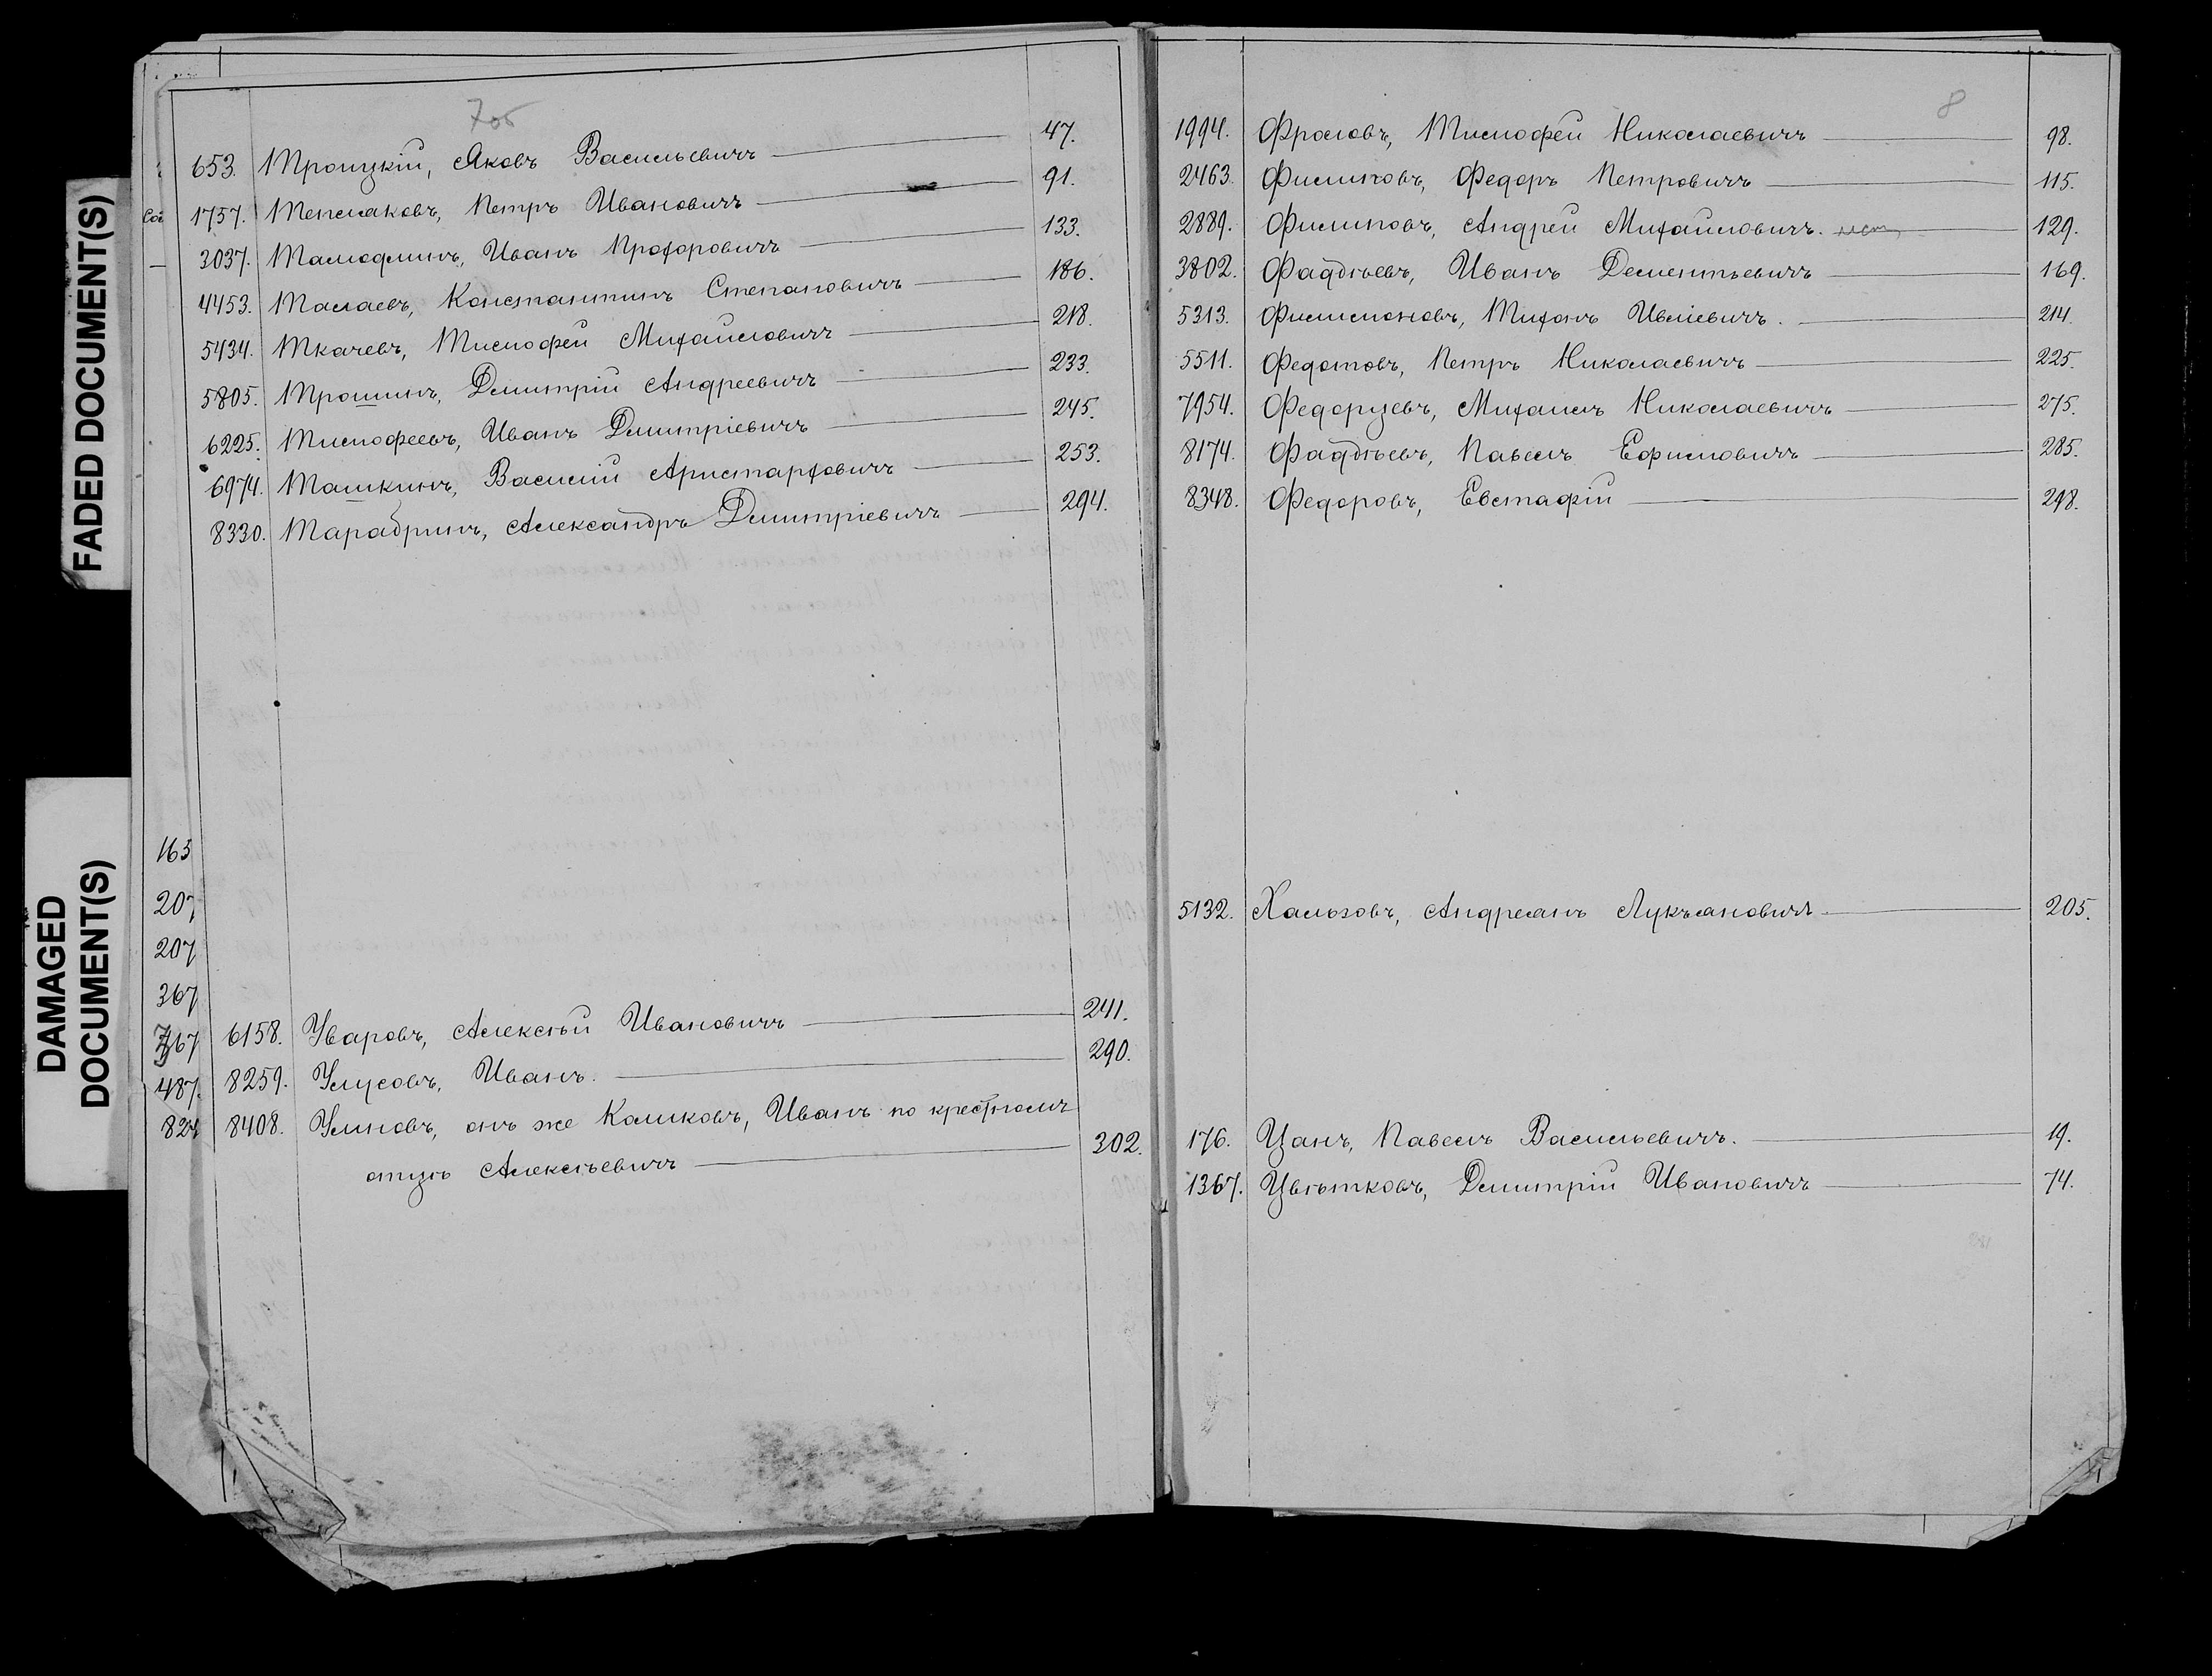 FADED DOCUMENT(S)
DAMAGED
DOCUMENT(S)
7об
653. Троицкій, Яковъ Васильевичъ 47.
1757. Теплаковъ, Петръ Ивановичъ 91.
3037. Иванъ Прохоровичъ 133.
4453. Талаевъ, Константинъ Степановичъ 186.
5434. Ткачевъ, Тимофей Михайловичъ 218.
5805. Трошинъ, Димитрій Андреевичъ 233.
6225. Тимофеевъ, Иванъ Димитріевичъ 245.
6974. Ташкинъ, Василій Аристарховичъ 253.
8330. Тарабринъ, Александръ Димитріевичъ 294.
163
207
207
367
767
487.
827
6158. Уваровъ, Алексѣй Ивановичъ 241.
8259. Улусовъ, Иванъ. 290.
8408. Умновъ, онъ же Колиховъ, Иванъ по крестному
отцу Алексѣевичъ 302.
8
1994. Фроловъ, Тимофей Николаевичъ 98.
2463. Филиповъ, Федоръ Петровичъ 115.
2889. Филиповъ, Андрей Михайловичъ. 129.
3802. Фаддѣевъ, Иванъ Дементьевичъ 169.
5313. Филимоновъ, Тихонъ Ивліевичъ. 214.
5511. Федотовъ, Петръ Николаевичъ 225.
7954. Федорцевъ, Михаилъ Николаевичъ 275.
8174. Фаддѣевъ, Павелъ Ефимовичъ 285.
8348. Федоровъ, Евстафій 298.
5132. Хользовъ, Андреянъ Лукъяновичъ 205.
176. Цанъ, Павелъ Васильевичъ. 19.
1367. Цвѣтковъ, Димитрій Ивановичъ 74.